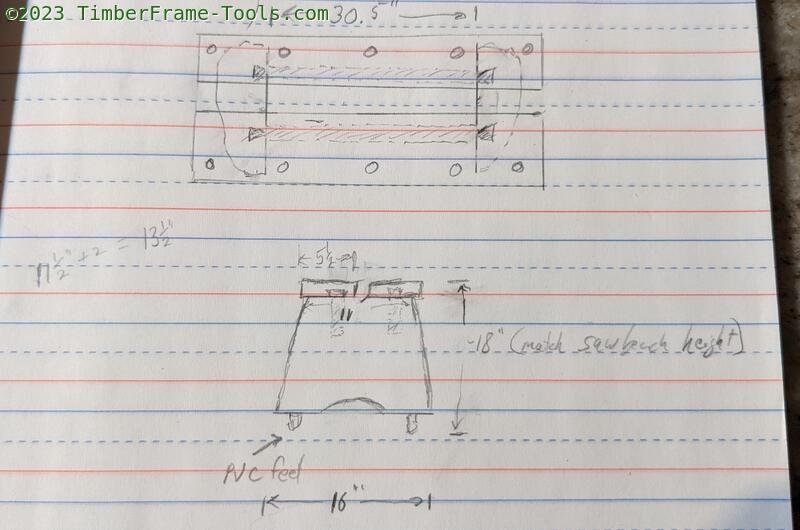 ©2023 TimberFrame-Tools.com
30.5"
11 1/2" + 2 = 13 1/2"
5 1/2
1"
~18" (match sawbench height)
PVC feet
16"